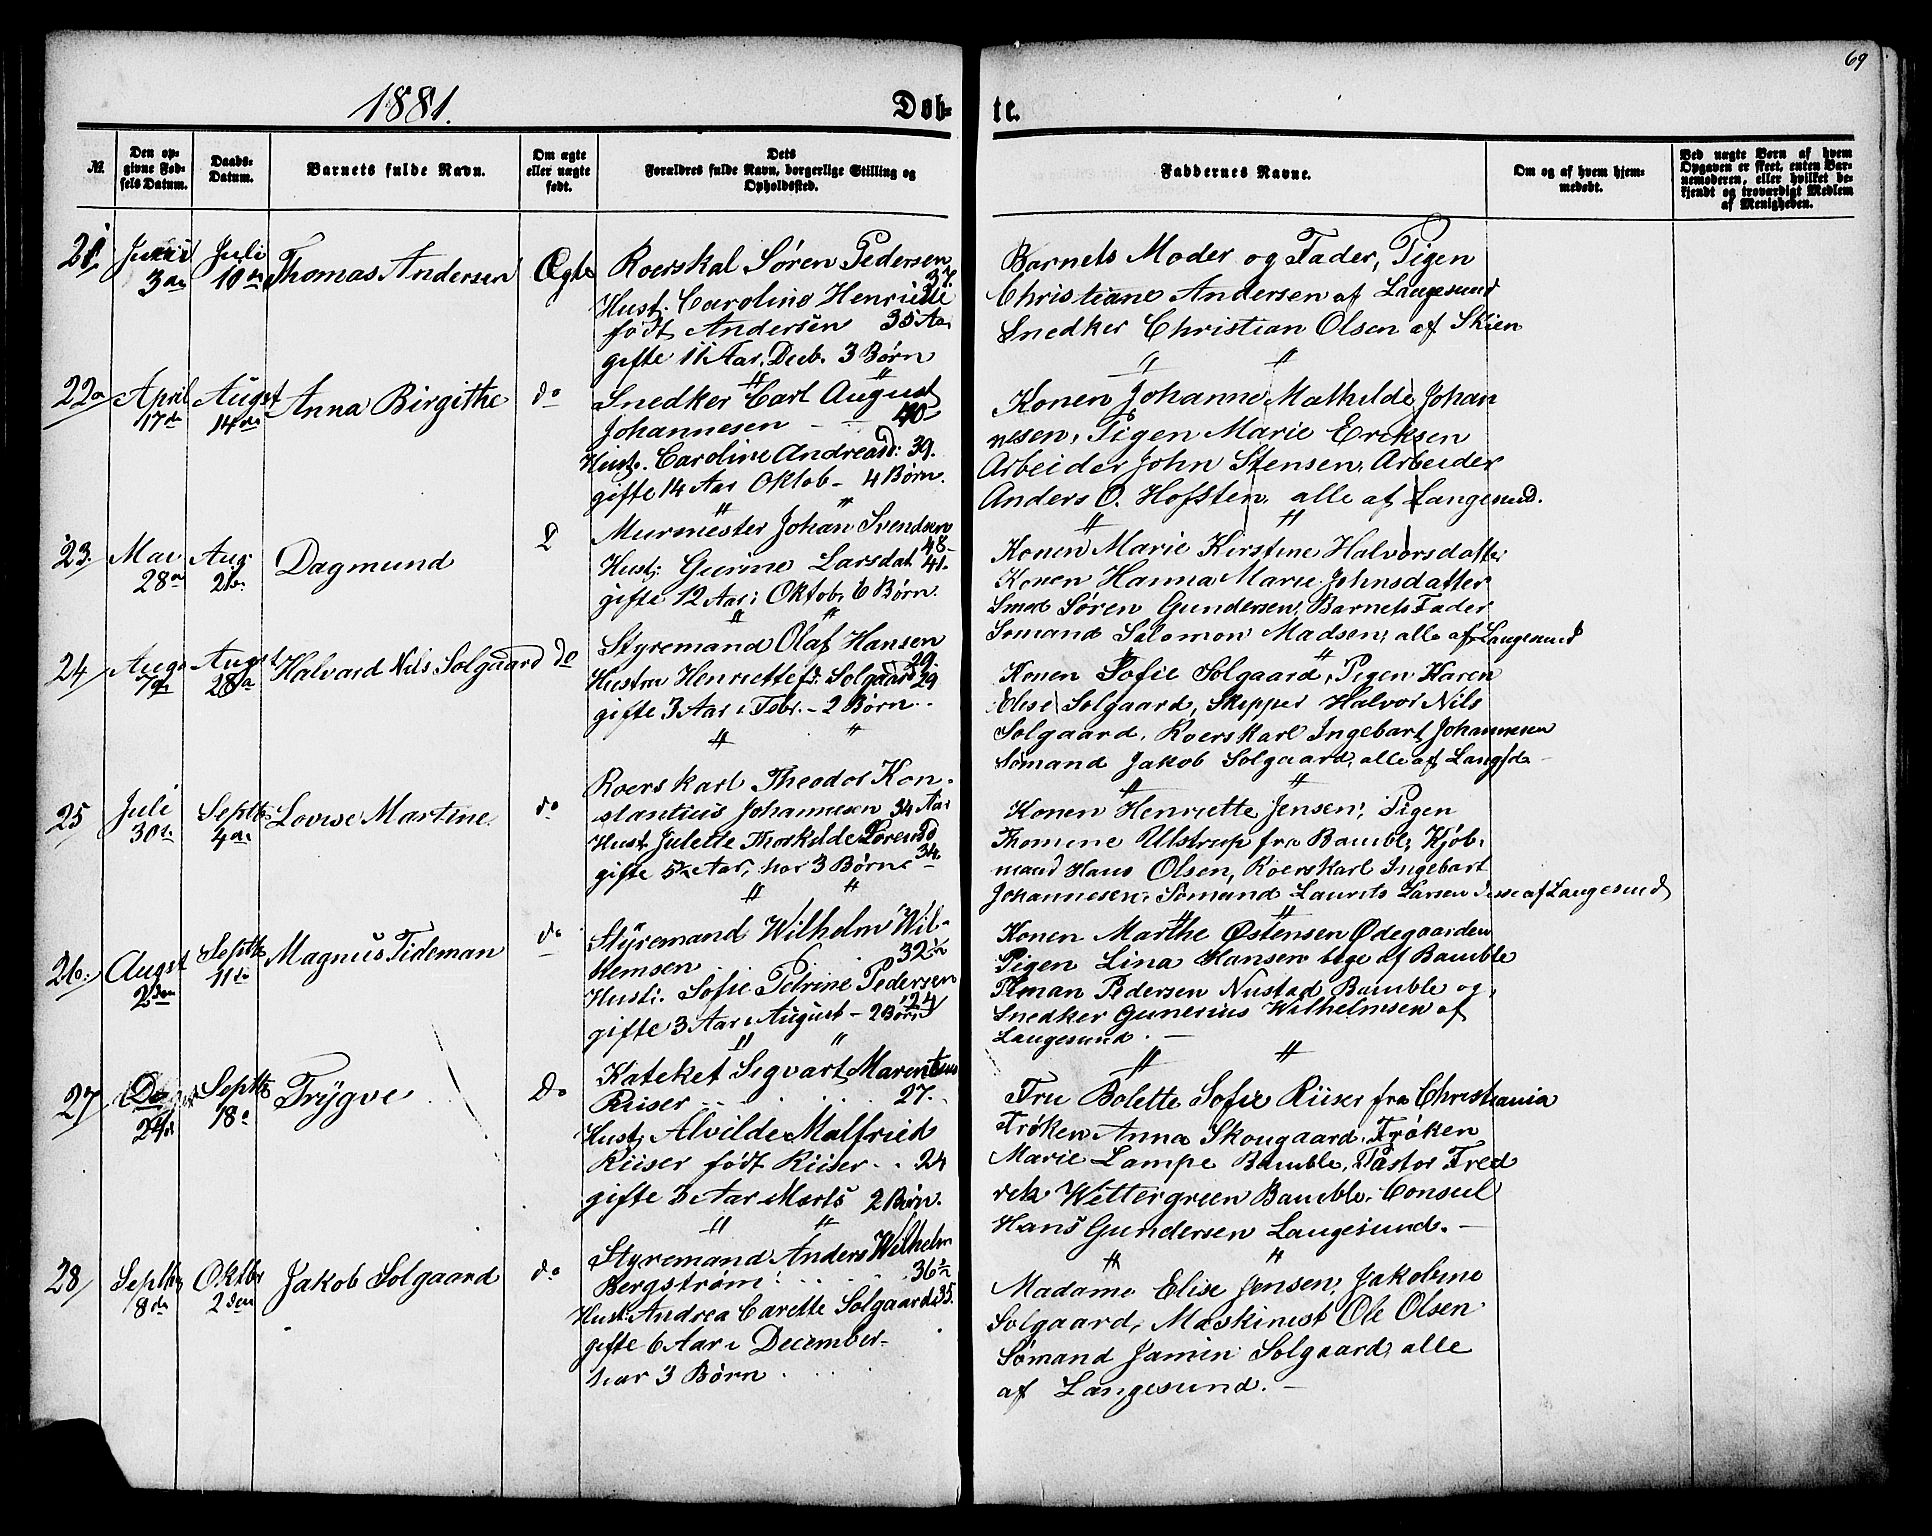 69
1881.
Døb-
te.
№.
Den op-
givne Fød-
sels Datum.
Daabs-
Datum.
Barnets fulde Navn.
Om ægte
eller uægte
født.
Dets
Forældres fulde Navn, borgerlige Stilling og
Opholdssted.
Faddernes Navne.
Om og af hvem hjem-
medøbt.
Ved uægte Børn af hvem
Opgaven er skeet, enten Bar-
nemoderen, eller hvilket be-
kjendt og troværdigt Medlem
af Menigheden.
21
3
Juli
10
Thomas Andersen
Ægte
Roerskal Søren Pedersen
37
Hust. Caroline Henriette
født Andersen 35 Aar
gifte 11 Aar. Decb. 3 Børn
Barnets Moder og Fader, Pigen
Christiane Andersen af Langesund
Snedker Christian Olsen af Skien
22
April
17de
Augst
14de
Anna Birgithe
do
Snedker Carl August
Johannesen 40
Hust. Caroline Andreasd: 39.
gifte 14 Aar Oktob - 4 Børn.
Konen Johanne Mathilde Johan
nesen, Pigen Marie Eriksen
Arbeider John Stensen, Arbeider
Anders O. Hofsten, alle af Langesund.
23.
Mai
28
Aug
21
Dagmund
Murmester Johan Svendsen
48-
Hust; Gurine Larsdat 41.
gifte 12 Aar i Oktob. 6 Børn.
Konen Marie Kirstine Halvorsdatter
Konen Hanna Marie Johnsdatter
Smed Søren Gundersen, Barnets Fader
Sømand Salomon Madsen, alle af Langesund
24
Augs
7de
Augst
28
Halvard Nils Solgaard
do
Styremand Olaf Hansen
29.
Hustru Henriette f. Solgaard 29
gifte 3 Aar i Febr. - 2 Børn.
Konen Sofie Solgaard, Pigen Karen
Elise Solgaard, Skipper Halvor Nils
Solgaard, Roerskarl Ingebart Johannesen
Sømand Jakob Solgaard, alle af Langsd
25
Juli
30
Septbr
4de
Lovise Martine
do
Roerskarl Theodor Kon-
stantius Johannesen 34 Aar
Hust Julette Thorkilde Lorensd
34.
gifte 5½ Aar, har 3 Børn
Konen Henriette Jensen, Pigen
Thomine Ulstrup fra Bamble, Kjøb-
mand Hans Olsen, Roerskarl Ingebart
Johannesen, Sømand Laurits Larsen disse af Langesund
26.
Augst
2den
Septbr
11te
Magnus Tideman
do
Styremand Wilholm Wil-
helmsen 32½
Hust: Sofie Petrine Pedersen
24
gifte 3 Aar i August - 2 Børn
Konen Marthe Østensen Ødegaarden
Pigen Lina Hansen bege af Bamble
Timan Pedersen Nustad Bamble og
Snedker Gunerius Wilhelmsen af
Langesund.
27
24de
Septbr
18
Trygve
do
Kateket Segvart Marentius
Riiser 27.
Hust; Alvilde Malfried
Riiser født Riiser 24
gifte 3 Aar Marts 2 Børn.
Fru Bolette Sofie Riiser fra Christiania
Frøken Anna Skougaard, Frøken
Marie Lampe Bamble, Pastor Fred
rek Wettergreen Bamble, Consul
Hans Gundersen Langesund.
28
Septbr
8de
Oktbr
2den
Jakob Solgaard
do
Styremand Anders Wilhelm
Bergstrøm 36½
Hust. Andrea Carette Solgaard 35.
gifte 6 Aar i December-
har 3 Børn
Madame Elise Jensen, Jakobine
Solgaard, Maskinest Ole Olsen
Sømand Jamin Solgaard, alle
af Langesund.